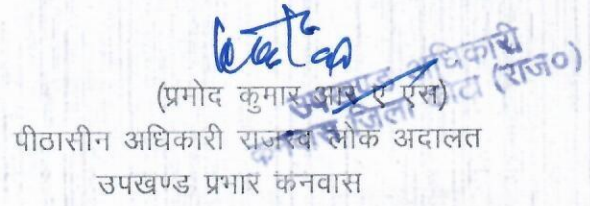 (प्रमोद कुमार आर ए एस)
पीठासीन अधिकारी राजस्व लोक अदालत
उपखण्ड प्रभार कनवास
उपखण्ड अधिकारी
कनवास जिला कोटा (राज०)